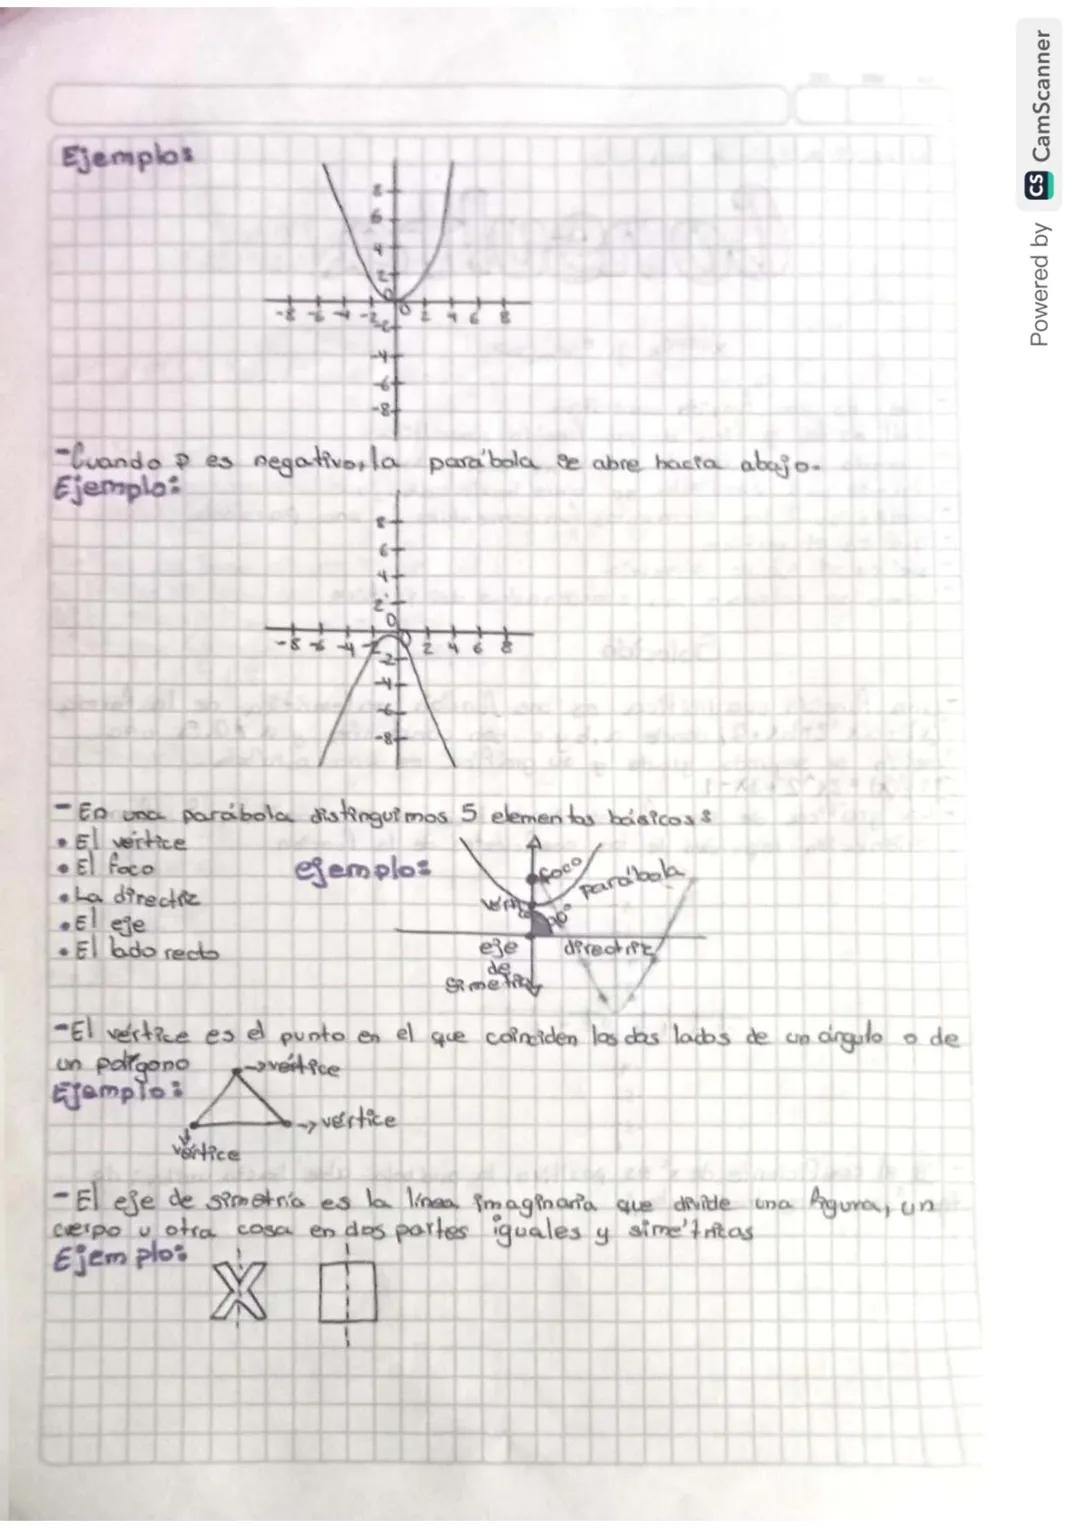 Ejemplo:
8
6
4
2
0
-8 -6 -4 -2 0 2 4 6 8
-2
-4
-6
-8
-Cuando P es negativo, la parábola se abre hacia abajo.
Ejemplo:
8
6
4
2
0
-8 -6 -4 -2 0 2 4 6 8
-2
-4
-6
-8
- En una parábola distinguimos 5 elementos básicos:
• El vértice
• El foco
• La directriz
• El eje
• El lado recto
ejemplo:
foco
parábola
90°
eje de simetría
directriz
-El vértice es el punto en el que coinciden los dos lados de un ángulo o de
un polígono
Ejemplo:
→vértice
→vértice
vértice
- El eje de simetría es la línea imaginaria que divide una figura, un
cuerpo u otra cosa en dos partes iguales y simétricas
Ejemplo:
Powered by CS CamScanner